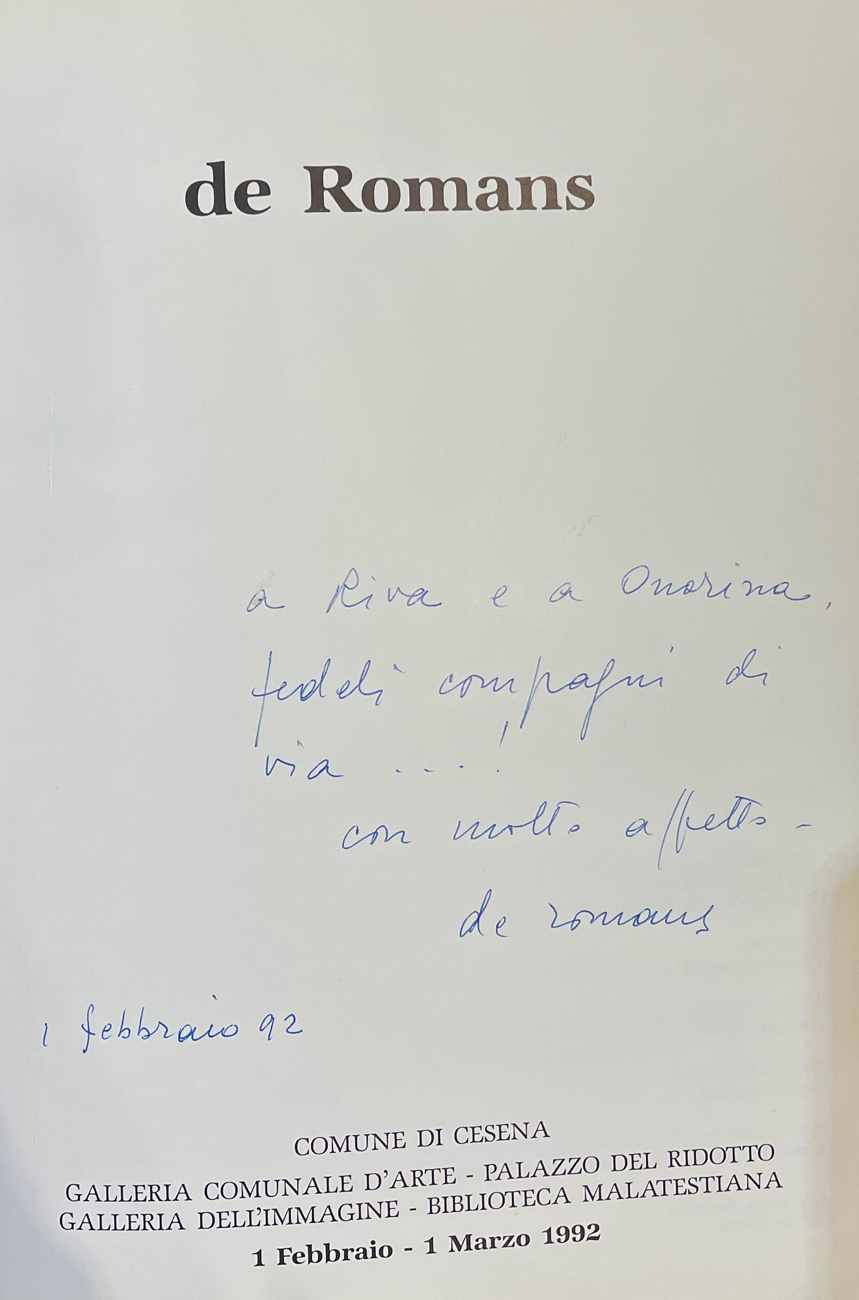 de Romans
a Riva e a Onorina,
fedeli compagni di
via ....!
con molto affetto -
de romans
1 febbraio 92
COMUNE DI CESENA
GALLERIA COMUNALE D'ARTE - PALAZZO DEL RIDOTTO
GALLERIA DELL'IMMAGINE - BIBLIOTECA MALATESTIANA
1 Febbraio - 1 Marzo 1992